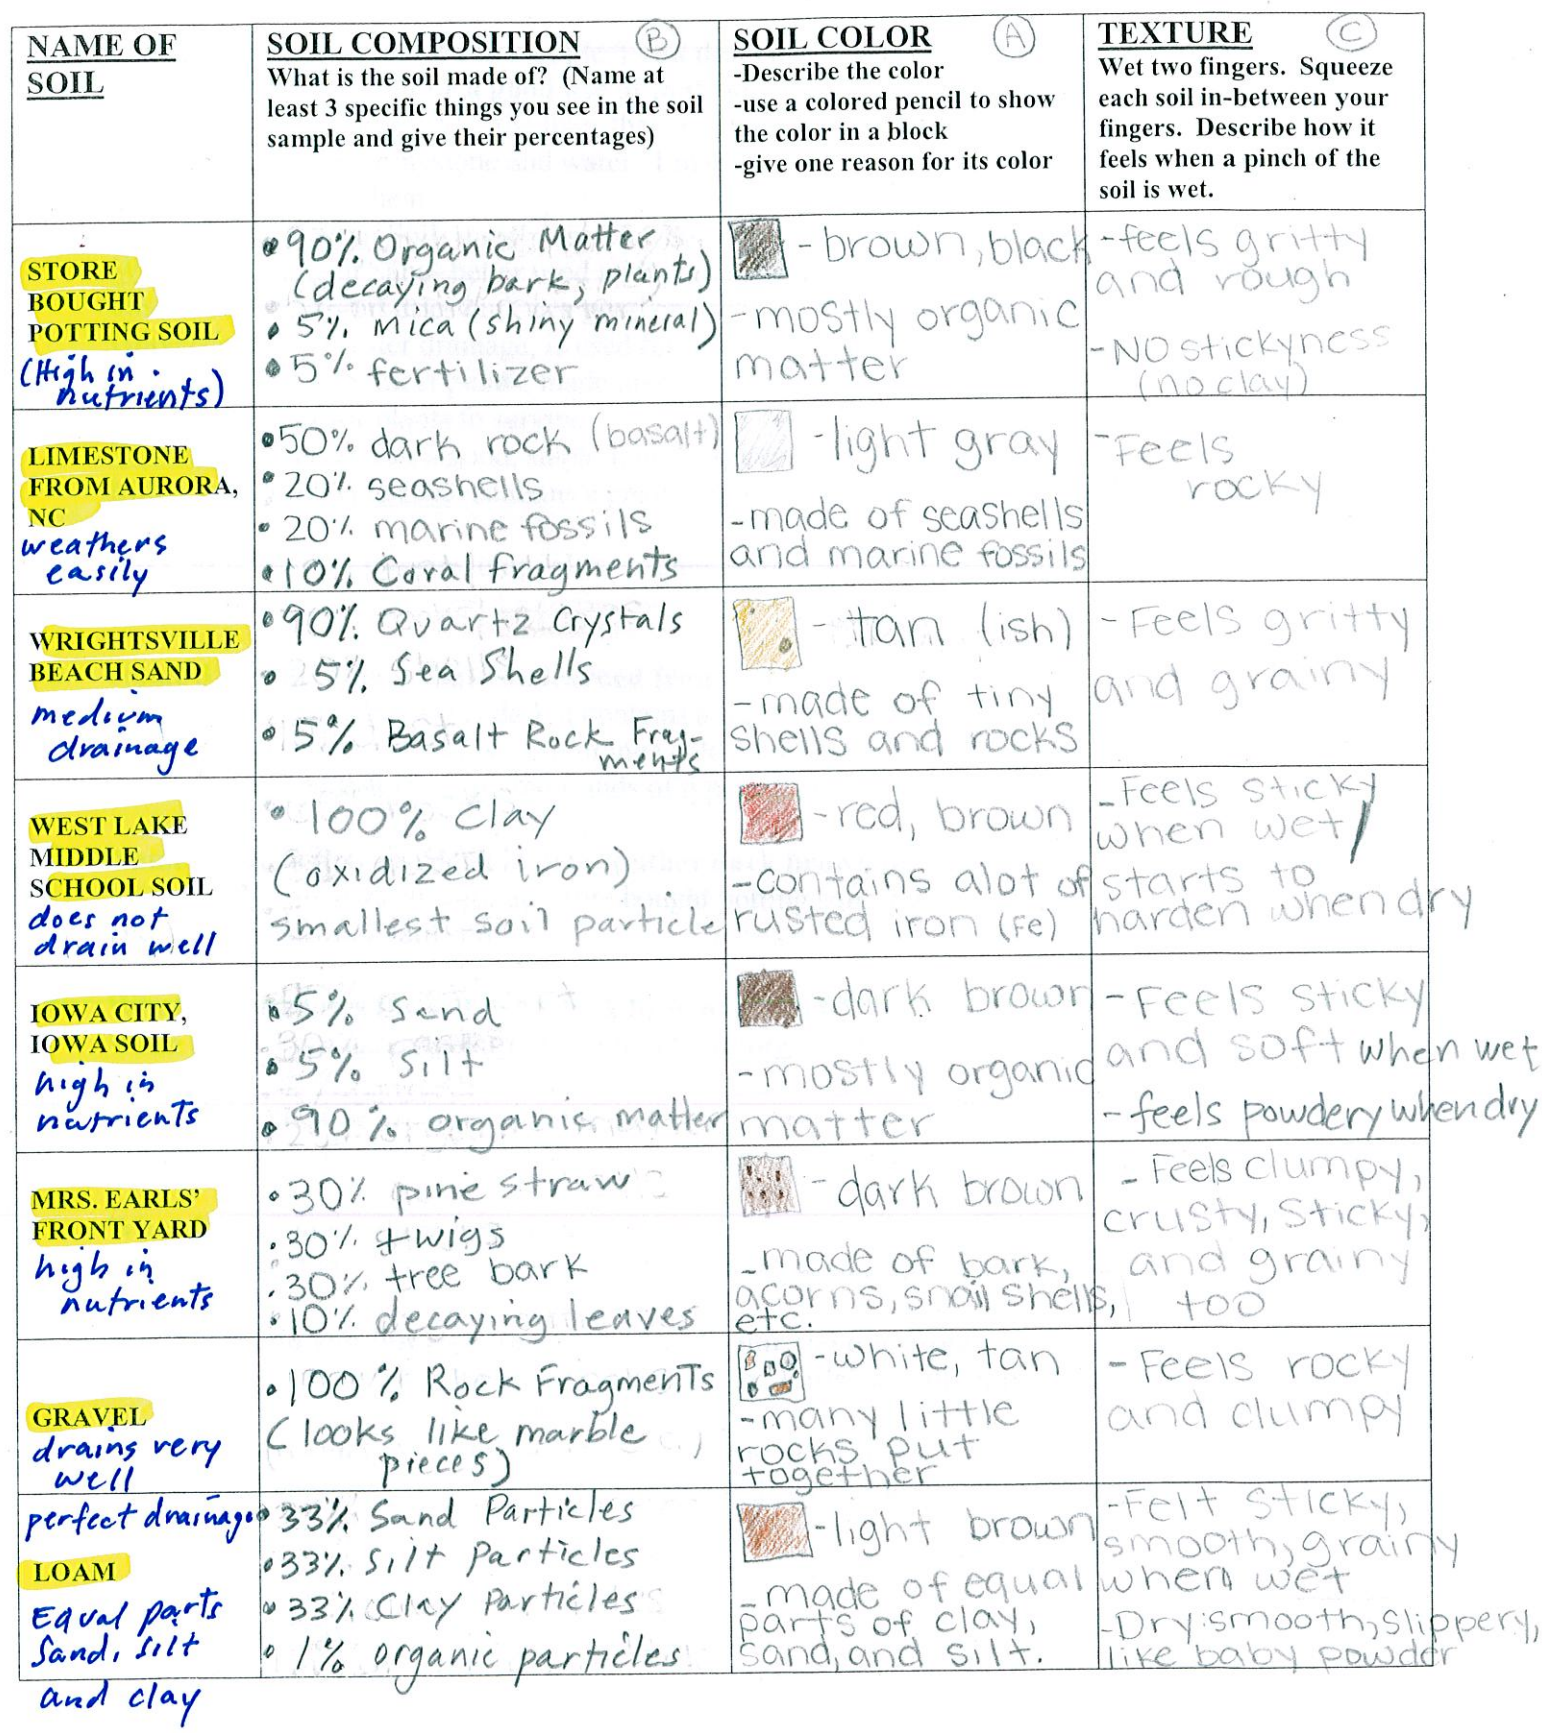 NAME OF
SOIL
SOIL COMPOSITION B
What is the soil made of? (Name at
least 3 specific things you see in the soil
sample and give their percentages)
SOIL COLOR A
-Describe the color
-use a colored pencil to show
the color in a block
-give one reason for its color
TEXTURE C
Wet two fingers. Squeeze
each soil in-between your
fingers. Describe how it
feels when a pinch of the
soil is wet.
STORE
BOUGHT
POTTING SOIL
(High in
nutrients)
• 90% Organic Matter
(decaying bark, plants)
• 5% mica (shiny mineral)
• 5% fertilizer
- brown, black
- mostly organic
matter
- feels gritty
and rough
- NO stickyness
(no clay)
LIMESTONE
FROM AURORA,
NC
weathers
easily
• 50% dark rock (basalt)
• 20% seashells
• 20% marine fossils
• 10% Coral fragments
- light gray
- made of seashells
and marine fossils
- Feels
rocky
WRIGHTSVILLE
BEACH SAND
medium
drainage
• 90% Quartz Crystals
• 5% Sea Shells
• 5% Basalt Rock Frag-
ments
- tan (ish)
- made of tiny
shells and rocks
- Feels gritty
and grainy
WEST LAKE
MIDDLE
SCHOOL SOIL
does not
drain well
• 100% Clay
(oxidized iron)
smallest soil particle
- red, brown
- contains alot of
rusted iron (Fe)
- Feels sticky
when wet/
starts to
harden when dry
IOWA CITY,
IOWA SOIL
high in
nutrients
• 5% Sand
• 5% Silt
• 90% organic matter
- dark brown
- mostly organic
matter
- Feels sticky
and soft when wet
- feels powdery when dry
MRS. EARLS’
FRONT YARD
high in
nutrients
• 30% pine straw
• 30% twigs
• 30% tree bark
• 10% decaying leaves
- dark brown
- made of bark,
acorns, snail shells,
etc.
- Feels clumpy,
crusty, sticky,
and grainy
too
GRAVEL
drains very
well
• 100% Rock Fragments
(looks like marble
pieces)
- white, tan
- many little
rocks put
together
- Feels rocky
and clumpy
perfect drainage
LOAM
Equal parts
Sand, silt
and clay
• 33% Sand Particles
• 33% Silt Particles
• 33% Clay Particles
• 1% organic particles
- light brown
- made of equal
parts of clay,
sand, and silt.
- Felt sticky,
smooth, grainy
when wet
- Dry: smooth, slippery,
like baby powder